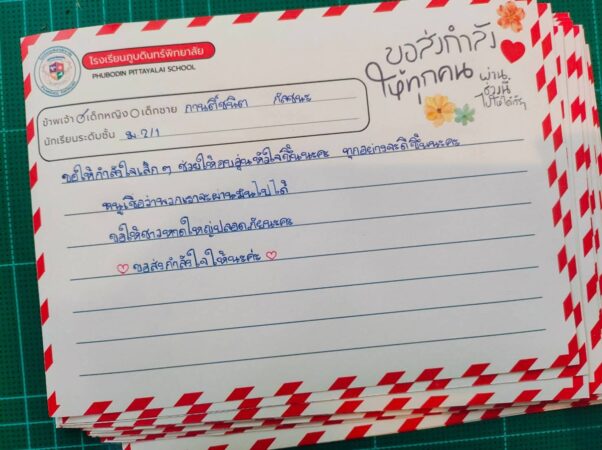 โรงเรียนภูบดินทร์พิทยาลัย
PHUBODIN PITTAYALAI SCHOOL
ขอส่งกำลัง
ให้ทุกคน
ผ่าน
ช่วงนี้
ไปให้ได้
ข้าพเจ้า เด็กหญิง เด็กชาย กานต์ชนิต
นักเรียนระดับชั้น ม.2/1
ขอให้กำลังใจเล็ก ๆ ช่วยให้อบอุ่นหัวใจขึ้นนะคะ ทุกอย่างจะดีขึ้นนะคะ
หนูเชื่อว่าพวกเราจะผ่านมันไปได้
ขอให้ชาวหาดใหญ่ปลอดภัยนะคะ
ขอส่งกำลังใจให้นะค่ะ